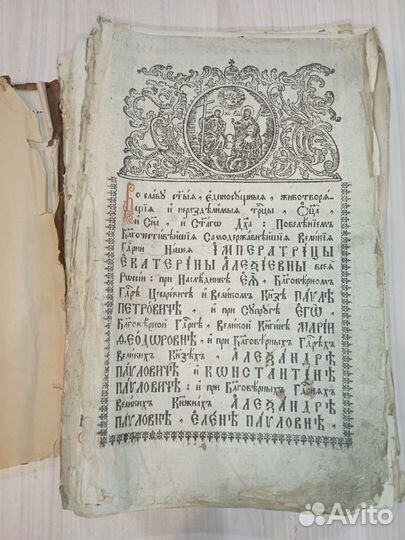 Во славу ст҃ыя, єдиносущныя, животворѧ-
щїѧ и нераздѣлимыѧ трⷪ҇цы, Оц҃а,
и Сн҃а, и Ст҃агѡ Дх҃а: Повелѣнїемъ
Бл҃гочестивѣйшїѧ Самодержавнѣйшїѧ Великїѧ
Гдⷭ҇рни Нашеѧ ІМПЕРАТРІЦЫ
ЕКАТЕРІНЫ АЛЕѮІЕВНЫ всеѧ
Рѡссїи: при Наслѣдникѣ ЕѦ, Бл҃говѣрномъ
Гдⷭ҇рѣ Цесаревичѣ и Великомъ Кн҃зѣ ПАѴЛѢ
ПЕТРОВИЧѢ, и при Сꙋпрꙋгѣ ЕГѠ,
Бл҃говѣрной Гдⷭ҇рнѣ, Великой Кнѧгинѣ МАРІИ
ѲЕОДѠРОВНѢ, и при Бл҃говѣрныхъ Гдⷭ҇рехъ
Великихъ Кн҃зехъ, АЛЕѮАНДРѢ
ПАѴЛОВИЧѢ и КѠНСТАНТІНѢ
ПАѴЛОВИЧѢ: и при Бл҃говѣрныхъ Гдⷭ҇рнѧхъ
Великихъ Кнѧжнахъ АЛЕѮАНДРѢ
ПАѴЛОВНѢ, ЕЛЕНѢ ПАѴЛОВНѢ,
Avito